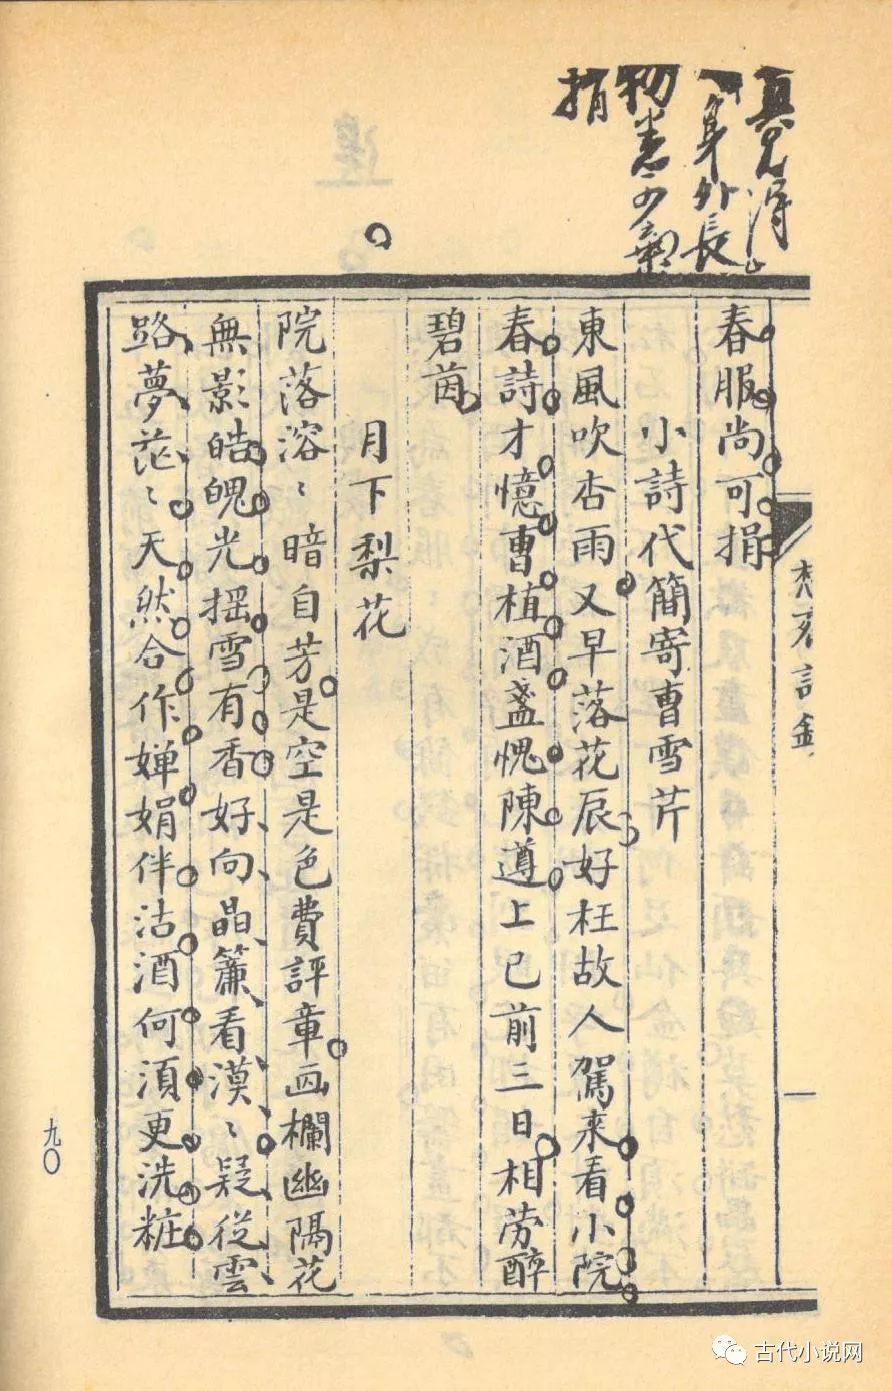 真見得
身外長
物甚可棄
捐
春服尚可捐
小詩代簡寄曹雪芹
東風吹杏雨又早落花辰好枉故人駕來看小院
春詩才憶曹植酒盞愧陳遵上巳前三日相勞醉
碧茵
月下梨花
院落溶〻暗自芳是空是色費評章画欄幽隔花
無影皓魄光揺雪有香好向晶簾看漠〻疑從雲
路夢茫〻天然合作嬋娟伴沽酒何湏更洗粧
懋齋詩鈔
一
九〇
古代小说网